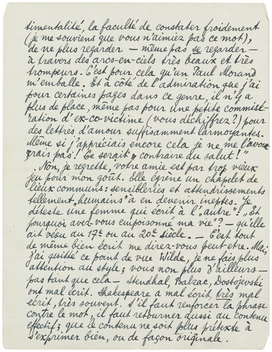 timentalité, la faculté de constater froidement
(je me souviens que vous n'aimiez pas ce mot),
de ne plus regarder — même pas se regarder —
à travers des arcs-en-ciels très beaux et très
trompeurs. C'est pour cela qu'un Paul Morand
m'emballe. Et à côté de l'admiration que j'ai
pour certaines pages dans ce genre, il n'y a
plus de place, même pas pour une petite commisé-
ration d'ex-co-victime (vous déchiffrez?) pour
des lettres d'amour suffisamment larmoyantes.
Même si j'appréciais encore cela je ne me l'avoue-
rais pas! Ce serait "contraire du salut!"
Non, je regrette, votre amie est par trop vieux
jeu pour mon goût. Elle égrène en chapelet de
lieux communs: sensibleries et attendrissements
tellement "humains" à en devenir ineptes. Je
déteste une femme qui écrit à l'autre: "Et
pourquoi avez-vous empoisonné ma vie?" — qu'elle
ait vécu au 17e ou au 20e siècle. — C'est tout
de même bien écrit me direz-vous peut-être. Moi,
j'ai quitté ce point de vue Wilde, je ne fais plus
attention au style; vous non plus d'ailleurs —
pas tant que cela — Stendhal, Balzac, Dostojevski
ont mal écrit. Shakespeare a mal écrit, très mal
écrit, très souvent. S'il faut enfoncer la phrase
contre le mot, il faut retourner aussi au contenu
effectif; que le contenu ne soit plus prétexte à
s'exprimer bien, ou de façon originale.